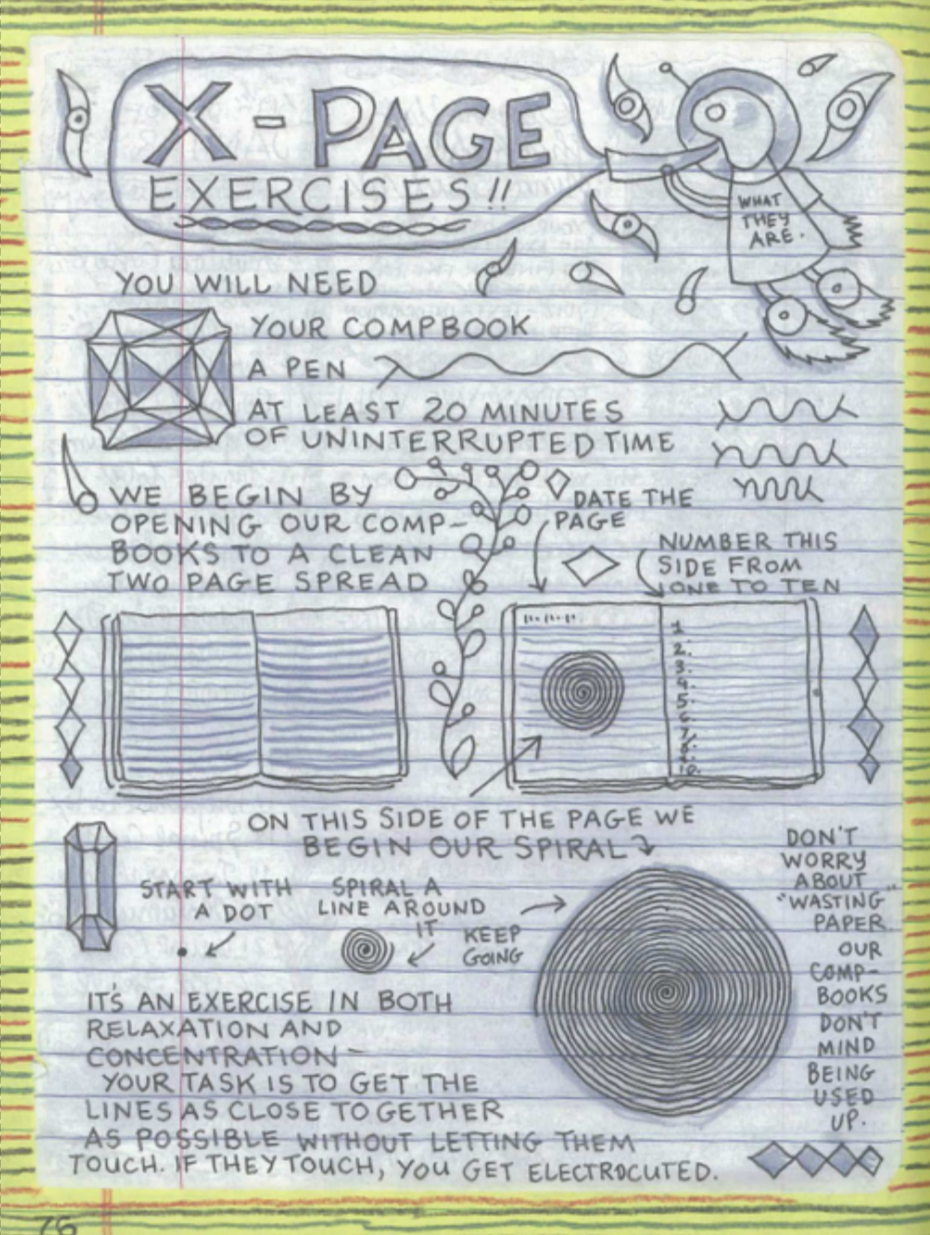 X-PAGE
EXERCISES!!
WHAT
THEY
ARE.
YOU WILL NEED
YOUR COMPBOOK
A PEN
AT LEAST 20 MINUTES
OF UNINTERRUPTED TIME
WE BEGIN BY
OPENING OUR COMP-
BOOKS TO A CLEAN
TWO PAGE SPREAD
DATE THE
PAGE
NUMBER THIS
SIDE FROM
ONE TO TEN
1.
2.
3.
4.
5.
6
7.
8.
9.
10.
ON THIS SIDE OF THE PAGE WE
BEGIN OUR SPIRAL
START WITH
A DOT
SPIRAL A
LINE AROUND
IT
KEEP
GOING
DON'T
WORRY
ABOUT
"WASTING"
PAPER
OUR
COMP-
BOOKS
DON'T
MIND
BEING
USED
UP.
IT'S AN EXERCISE IN BOTH
RELAXATION AND
CONCENTRATION -
YOUR TASK IS TO GET THE
LINES AS CLOSE TOGETHER
AS POSSIBLE WITHOUT LETTING THEM
TOUCH. IF THEY TOUCH, YOU GET ELECTROCUTED.
76